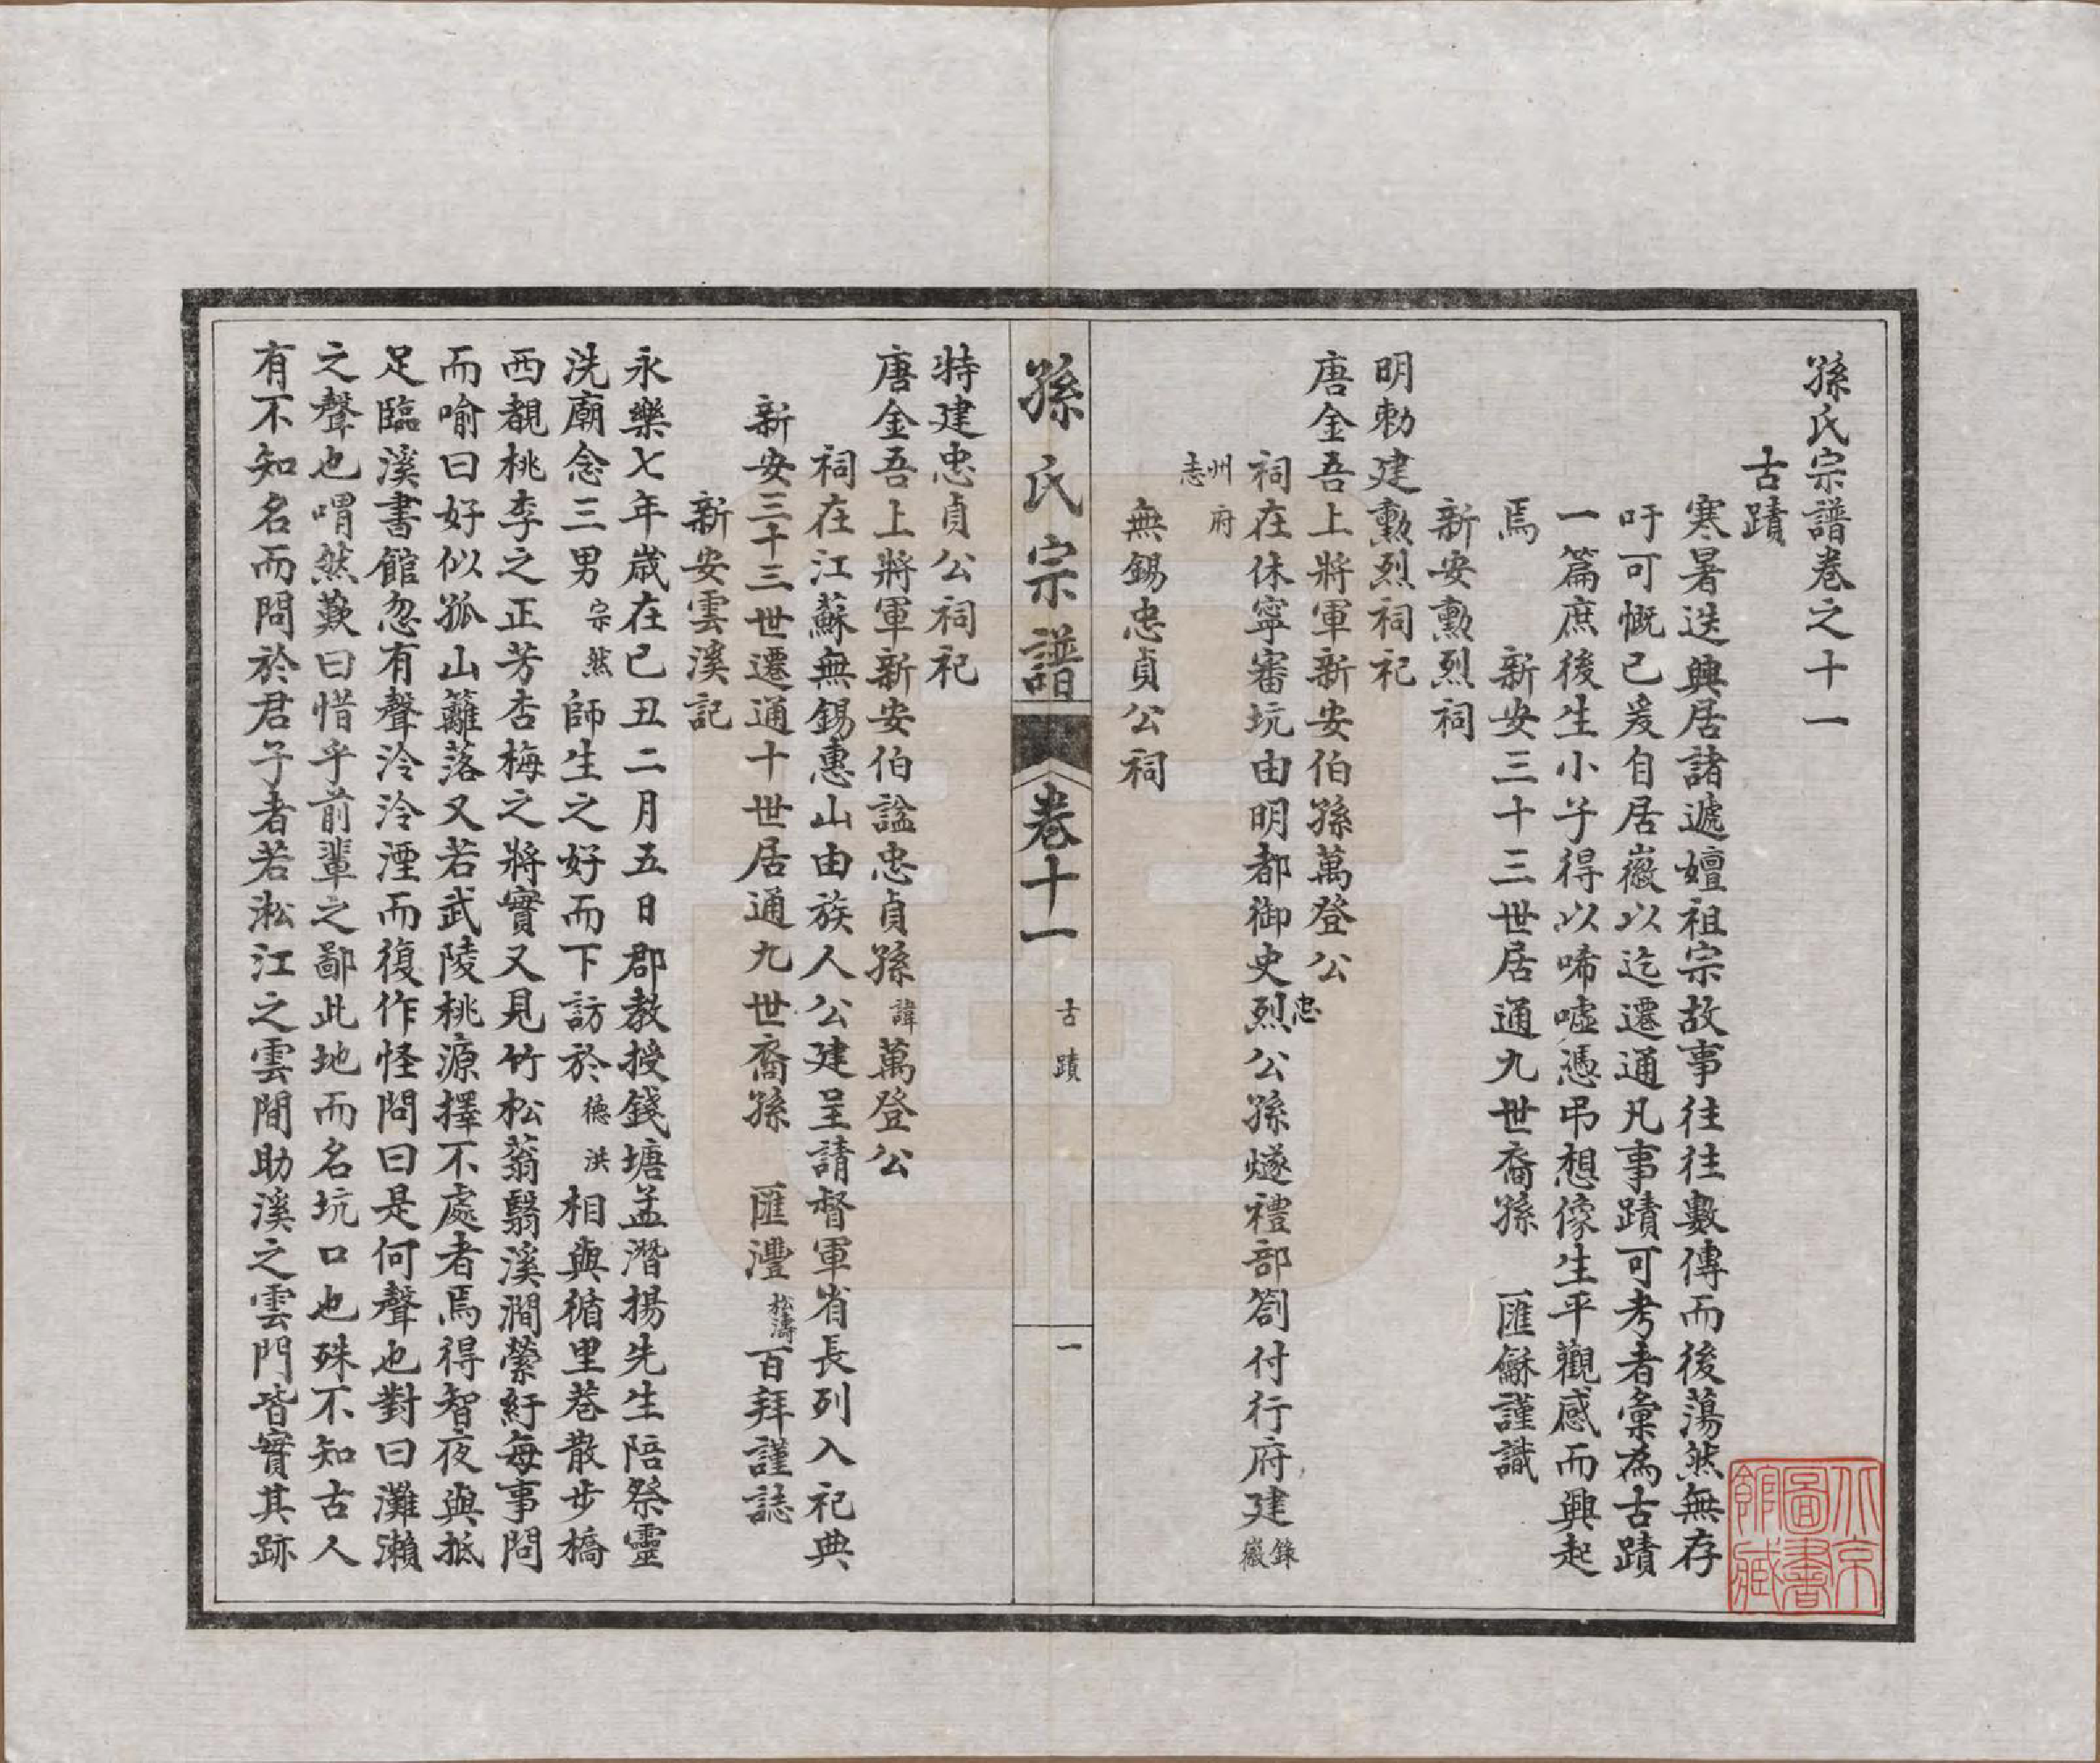 孫氏宗譜卷之十一
古蹟
寒暑迭興居諸遞嬗祖宗故事往往數傳而後蕩然無存
吁可慨已爰自居徽以迄遷通凡事蹟可考者彙為古蹟
一篇庶後生小子得以唏噓憑弔想像生平觀感而興起
焉　新安三十三世居通九世裔孫　匯龢謹識
新安勲烈祠
明勅建勲烈祠祀
唐金吾上將軍新安伯孫萬登公
祠在休寧審坑由明都御史忠烈公孫燧禮部劄付行府建錄徽
州府志
無錫忠貞公祠
孫氏宗譜　卷十一　古蹟　一
特建忠貞公祠祀
唐金吾上將軍新安伯諡忠貞孫諱萬登公
祠在江蘇無錫惠山由族人公建呈請督軍省長列入祀典
新安三十三世遷通十世居通九世裔孫　匯灃松濤百拜謹誌
新安雲溪記
永樂七年歲在己丑二月五日郡教授錢塘孟潛揚先生陪祭靈
洗廟念三男宗然師生之好而下訪於德洪相與循里巷散步橋
西覩桃李之正芳杏梅之將實又見竹松蓊翳溪澗縈紆每事問
而喻曰好似孤山籬落又若武陵桃源擇不處者焉得智夜與抵
足臨溪書館忽有聲泠泠湮而復作怪問曰是何聲也對曰灘瀨
之聲也喟然歎曰惜乎前輩之鄙此地而名坑口也殊不知古人
有不知名而問於君子者若淞江之雲間助溪之雲門皆實其跡
北京圖書館藏